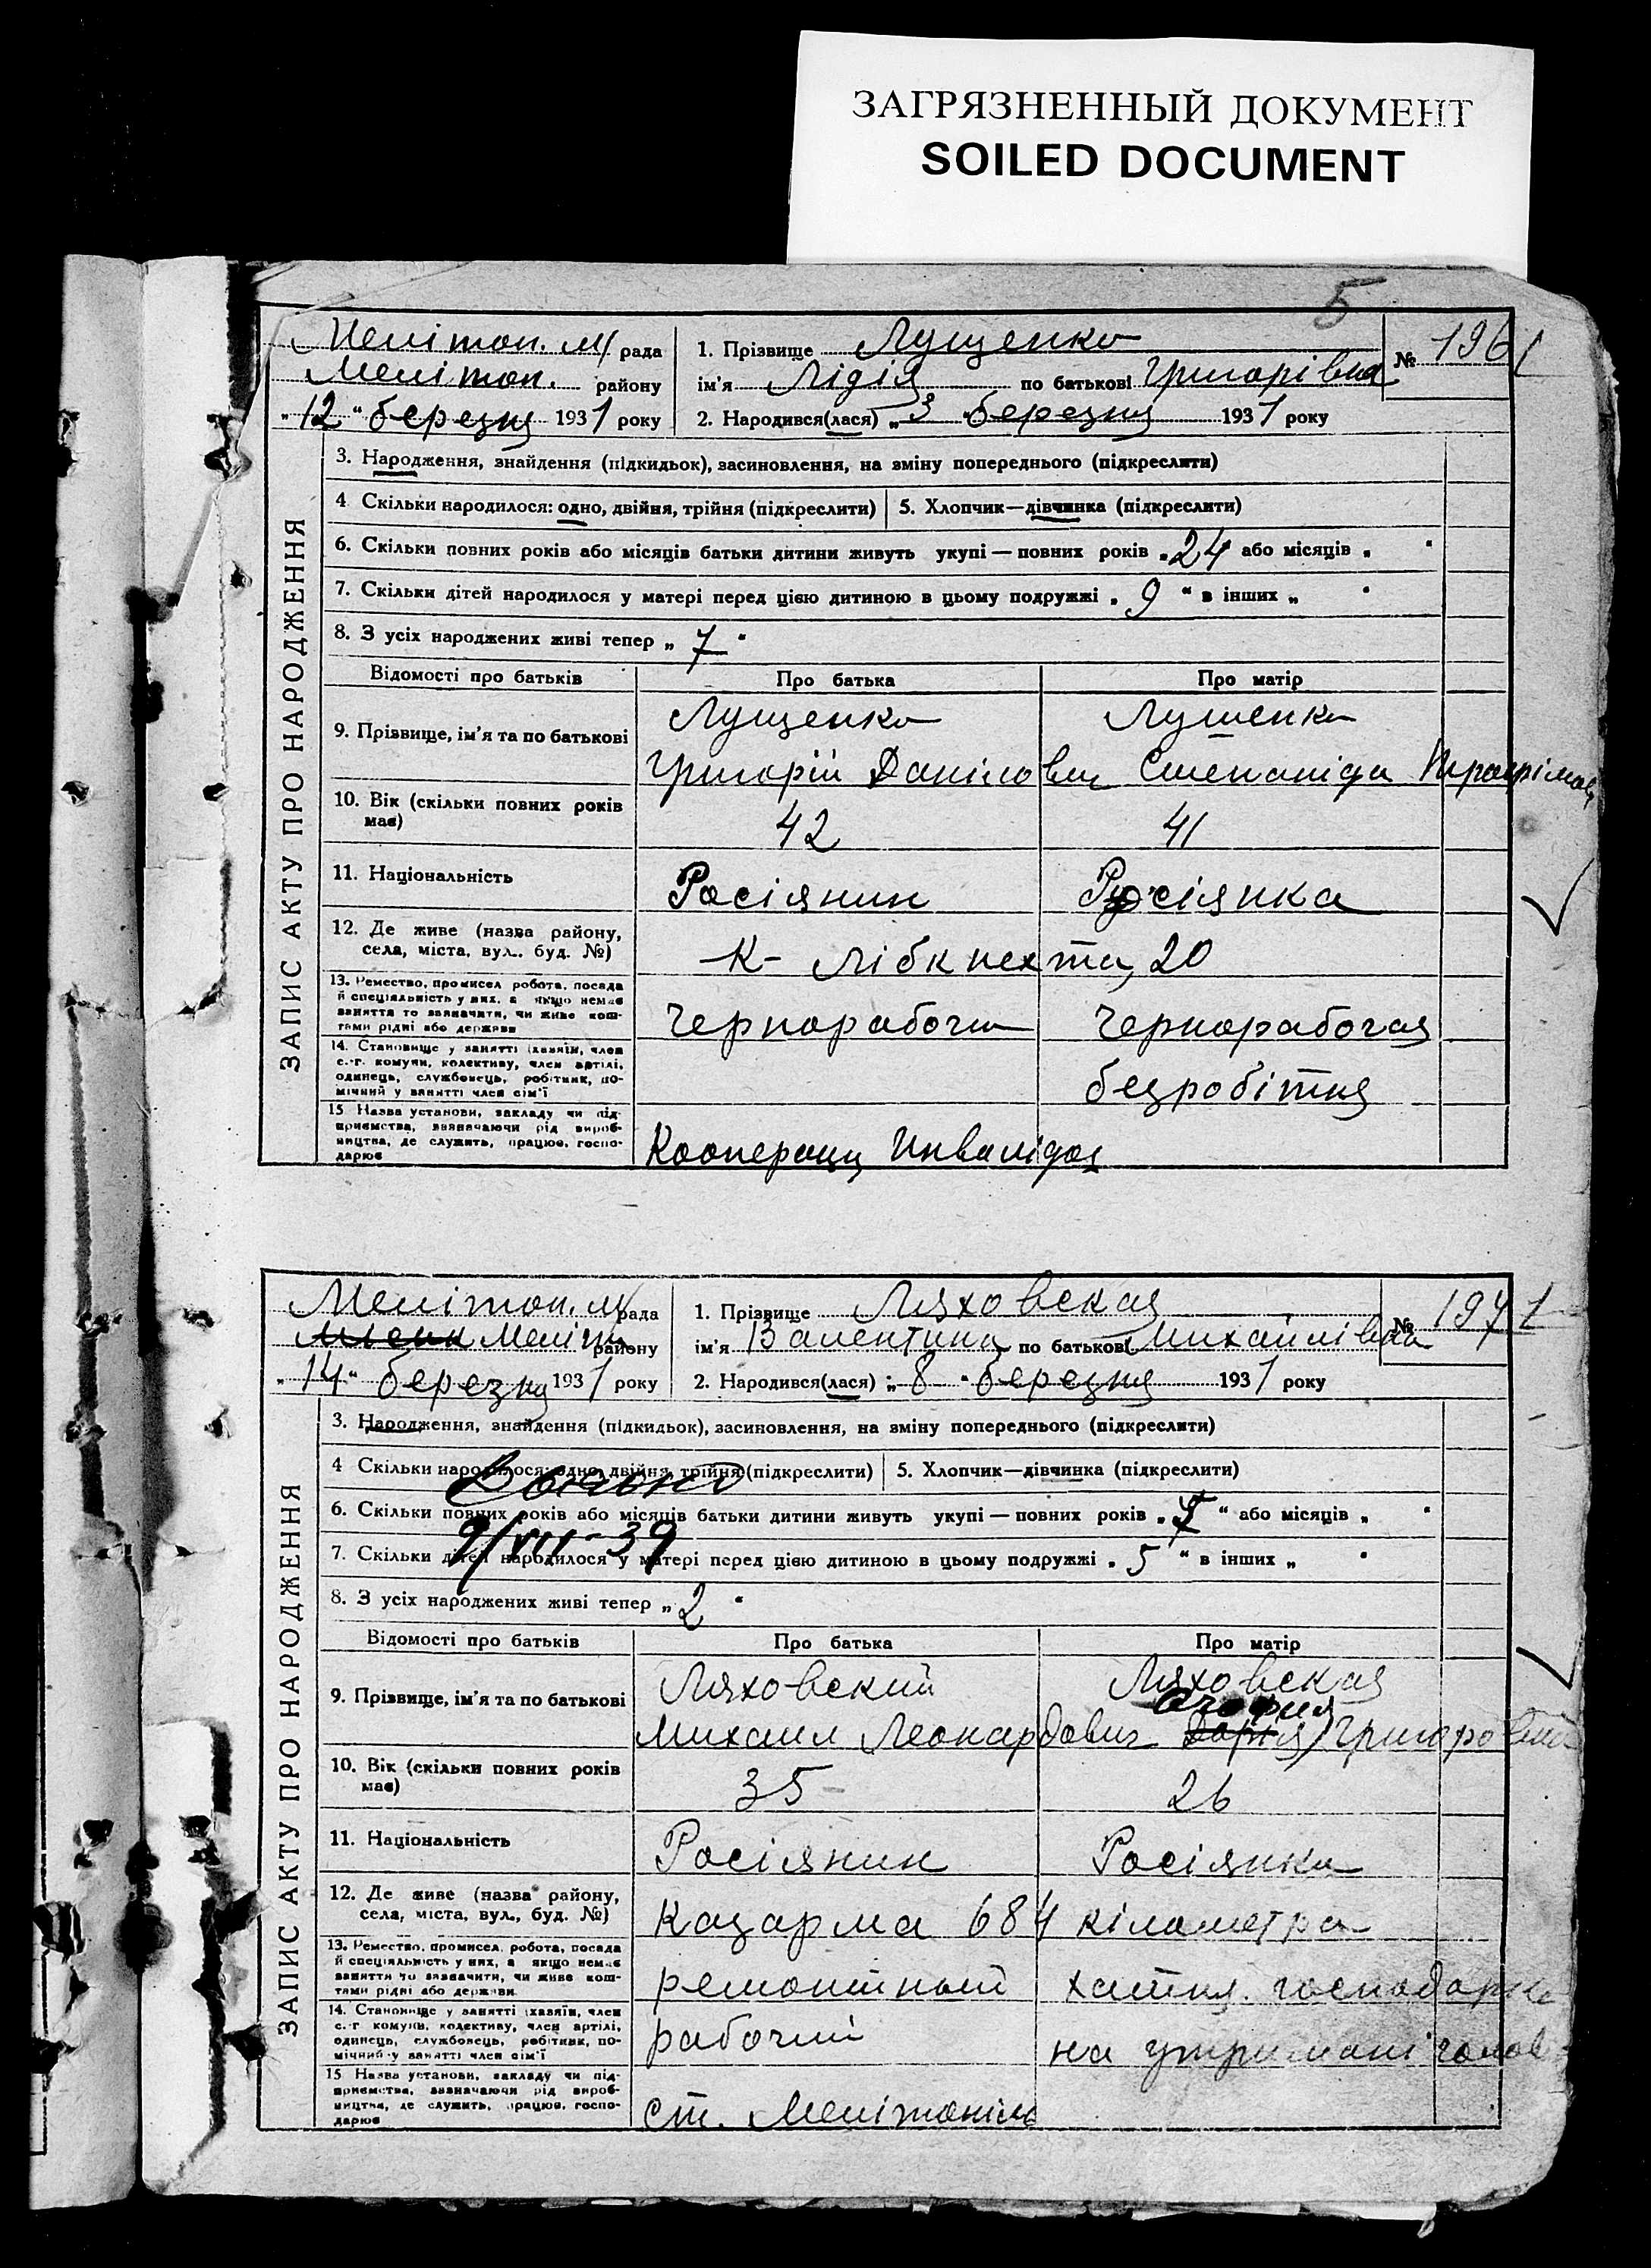 ЗАГРЯЗНЕННЫЙ ДОКУМЕНТ
SOILED DOCUMENT
5
ЗАПИС АКТУ ПРО НАРОДЖЕННЯ
Мелітоп. м/ рада
Мелітоп. району
„12“ березня 1931 року
1. Прізвище Лущенко
ім'я Лідія по батькові Григорівна
2. Народився(лася) „3“ березня 1931 року
№ 196/
3. Народження, знайдення (підкидьок), засиновлення, на зміну попереднього (підкреслити)
4 Скільки народилося: одно, двійня, трійня (підкреслити) 5. Хлопчик—дівчинка (підкреслити)
6. Скільки повних років або місяців батьки дитини живуть укупі — повних років „24“ або місяців „ “
7. Скільки дітей народилося у матері перед цією дитиною в цьому подружжі „ 9 “ в інших „ “
8. З усіх народжених живі тепер „ 7 “
Відомості про батьків Про батька Про матір
9. Прізвище, ім'я та по батькові
Лущенко Лушенко
Григорій Данілович Степаніда
10. Вік (скільки повних років має) 42 41
11. Національність Росіянин Росіянка
12. Де живе (назва району, села, міста, вул., буд. №) К- Лібкнехта, 20
13. Ремество, промисел, робота, посада й спеціяльність у них, а якщо немає заняття то зазначити, чи живе коштами рідні або держави Чернорабочи Чернорабочая
14. Становище у занятті (хазяїн, член с.-г. комуни, колективу, член артілі, одинець, службовець, робітник, помічний у занятті член сім'ї безробітня
15. Назва установи, закладу чи підприємства, зазначаючи рід виробництва, де служить, працює, господарює Кооперацц Инвалідоя
ЗАПИС АКТУ ПРО НАРОДЖЕННЯ
Мелітоп. м/ рада
Меліт району
„14“ березня 1931 року
1. Прізвище Ляховская
ім'я Валентина по батькові Михайлівна
2. Народився(лася) „8“ березня 1931 року
№ 197/
3. Народження, знайдення (підкидьок), засиновлення, на зміну попереднього (підкреслити)
4 Скільки народилося: одно, двійня, трійня (підкреслити) 5. Хлопчик—дівчинка (підкреслити)
6. Скільки повних років або місяців батьки дитини живуть укупі — повних років „ “ або місяців „ “
9/VII-39
7. Скільки дітей народилося у матері перед цією дитиною в цьому подружжі „ 5 “ в інших „ “
8. З усіх народжених живі тепер „ 2 “
Відомості про батьків Про батька Про матір
9. Прізвище, ім'я та по батькові
Ляховский Ляховская
Михаил Леонардович Дарья Григоровн
10. Вік (скільки повних років має) 35 26
11. Національність Росіянин Росіянка
12. Де живе (назва району, села, міста, вул., буд. №) Казарма 684 кілометра
13. Ремество, промисел, робота, посада й спеціяльність у них, а якщо немає заняття то зазначити, чи живе коштами рідні або держави ремонтный хатня господарка
14. Становище у занятті (хазяїн, член с.-г. комуни, колективу, член артілі, одинець, службовець, робітник, помічний у занятті член сім'ї рабочий на утримані голов
15 Назва установи, закладу чи підприємства, зазначаючи рід виробництва, де служить, працює, господарює ст. Мелітопіль